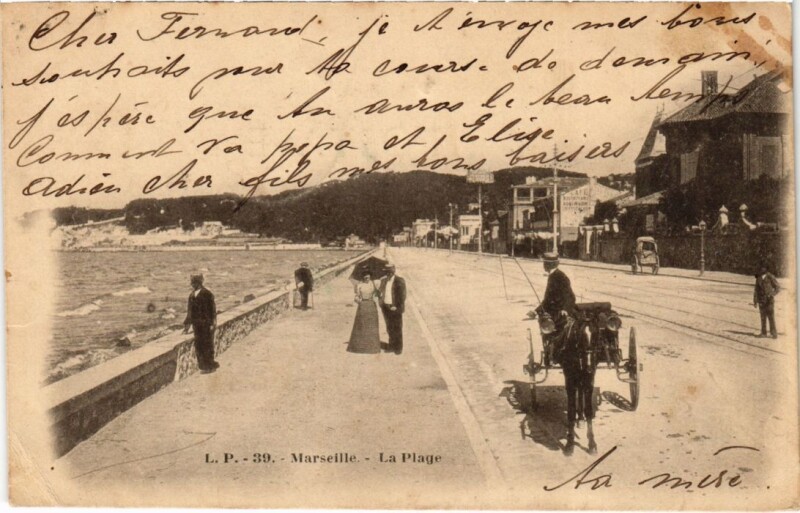 Cher Fernand, je t'envoje mes bons
souhaits pour ta course de demain,
j'espère que tu auras le beau temps,
Comment va papa et Elise
Adieu cher fils mes bons baisers
CAFÉ
L. P. - 39. - Marseille. - La Plage
Ta mère